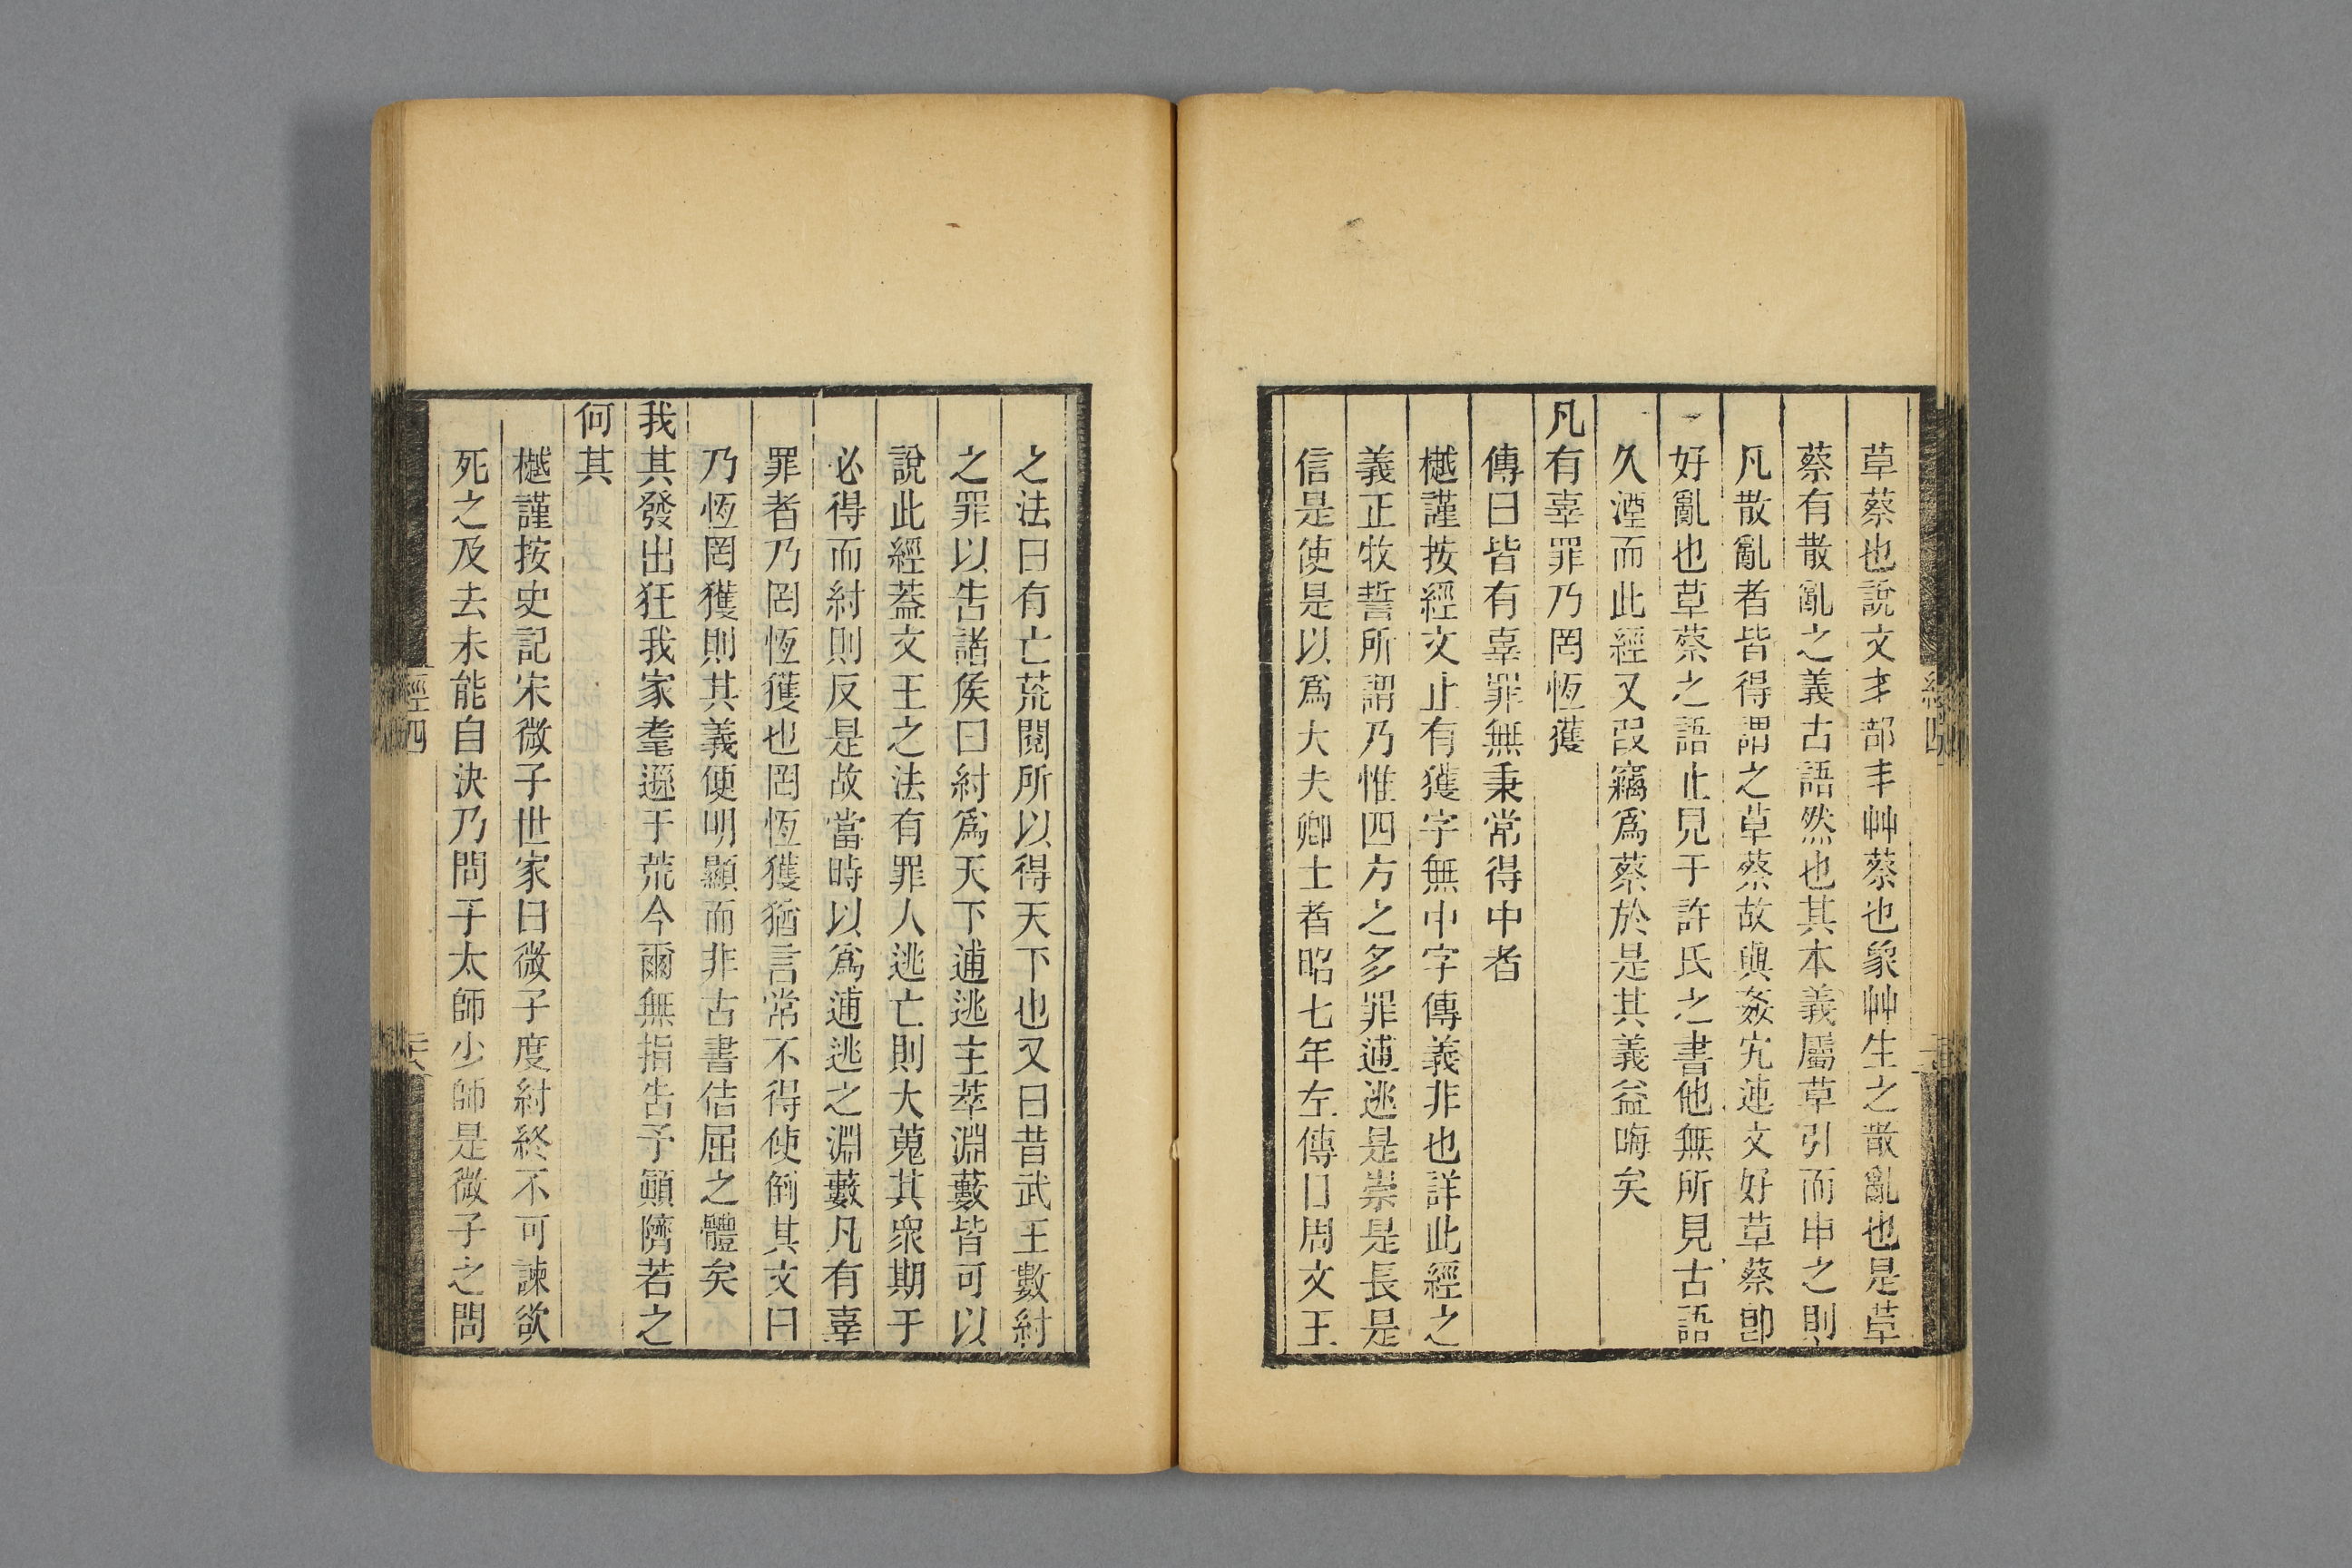 草蔡也說文丯部丯艸蔡也象艸生之散亂也是草
蔡有散亂之義古語然也其本義屬草引而申之則
凡散亂者皆得謂之草蔡故與姦宄連文好草蔡卽
好亂也草蔡之語止見于許氏之書他無所見古語
久湮而此經又叚竊爲蔡於是其義益晦矣
凡有辜罪乃罔恆獲
傳曰皆有辜罪無秉常得中者
樾謹按經文止有獲字無中字傳義非也詳此經之
義正牧誓所謂乃惟四方之多罪逋逃是崇是長是
信是使是以爲大夫卿士者昭七年左傳曰周文王
之法曰有亡荒閱所以得天下也又曰昔武王數紂
之罪以告諸侯曰紂爲天下逋逃主萃淵藪皆可以
說此經葢文王之法有罪人逃亡則大蒐其衆期于
必得而紂則反是故當時以爲逋逃之淵藪凡有辜
罪者乃罔恆獲也罔恆獲猶言常不得使倒其文曰
乃恆罔獲則其義便明顯而非古書佶屈之體矣
我其發出狂我家耄遜于荒今爾無指告予顚隮若之
何其
樾謹按史記宋微子世家曰微子度紂終不可諫欲
死之及去未能自決乃問于太師少師是微子之問
經四